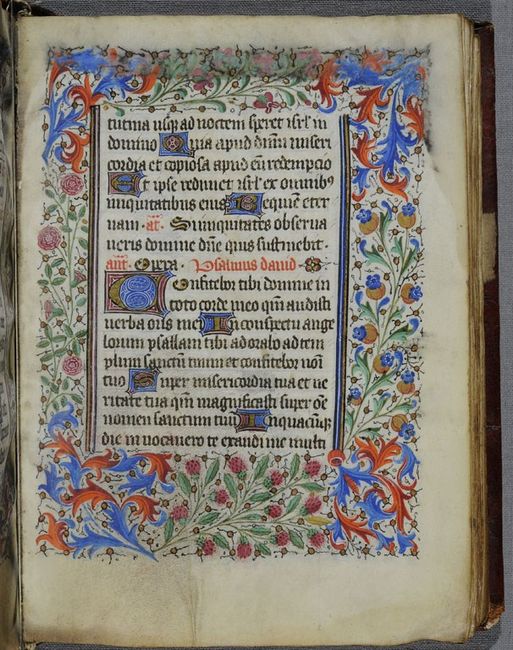 tutina usq; ad noctem speret isrl' in
domino Quia apud dnm miseri
cordia et copiosa apud eu redempcio
Et ipse redimet isrl' ex omnibꝰ
iniquitatibus eius Requie eter
nam at Si iniquitates observa
ueris domine dne quis sustinebit.
ant. Opera. Psalmus dauid
Confitebor tibi domine in
toto corde meo qm audisti
uerba oris mei In conspectu ange
lorum psallam tibi adorabo ad tem
plum sanctu tuum et confitebor noi
tuo Super misericordia tua et ue
ritate tua qm magnificasti super oe
nomen sanctum tuu In quacuq;
die inuocauero te exaudi me multi